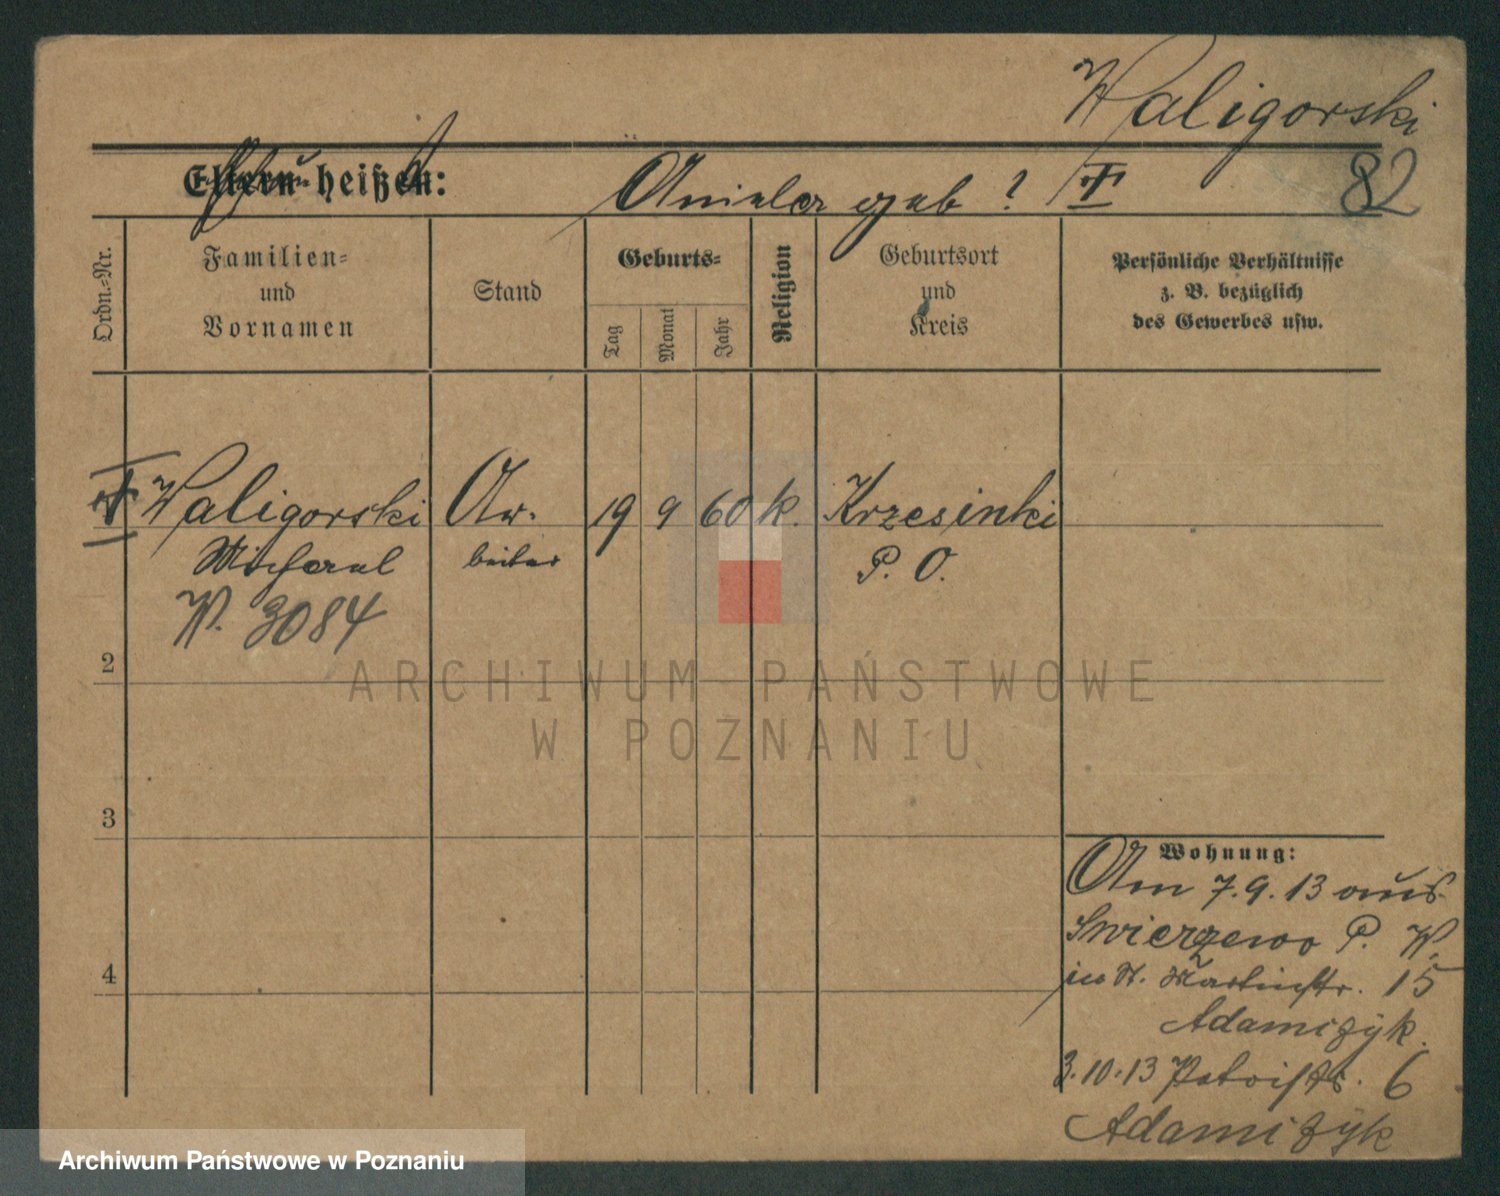 Waligorski
82
Eltern heißen:
geb ?
Ordn.-Nr.
Familien-
und
Vornamen
Stand
Geburts-
Tag
Monat
Jahr
Religion
Geburtsort
und
Kreis
Persönliche Verhältnisse
z. B. bezüglich
des Gewerbes usw.
Waligorski Ar- 19 9 60 k. Krzesinki
Michael beiter P. O.
W. 3084
2
3
4
ARCHIWUM PAŃSTWOWE
W POZNANIU
Wohnung:
Am 7.9.13 aus
Swierzewo P. W.
in St. Martinstr. 15
Adamczyk
3.10.13 Petristr. 6
Adamczyk
Archiwum Państwowe w Poznaniu